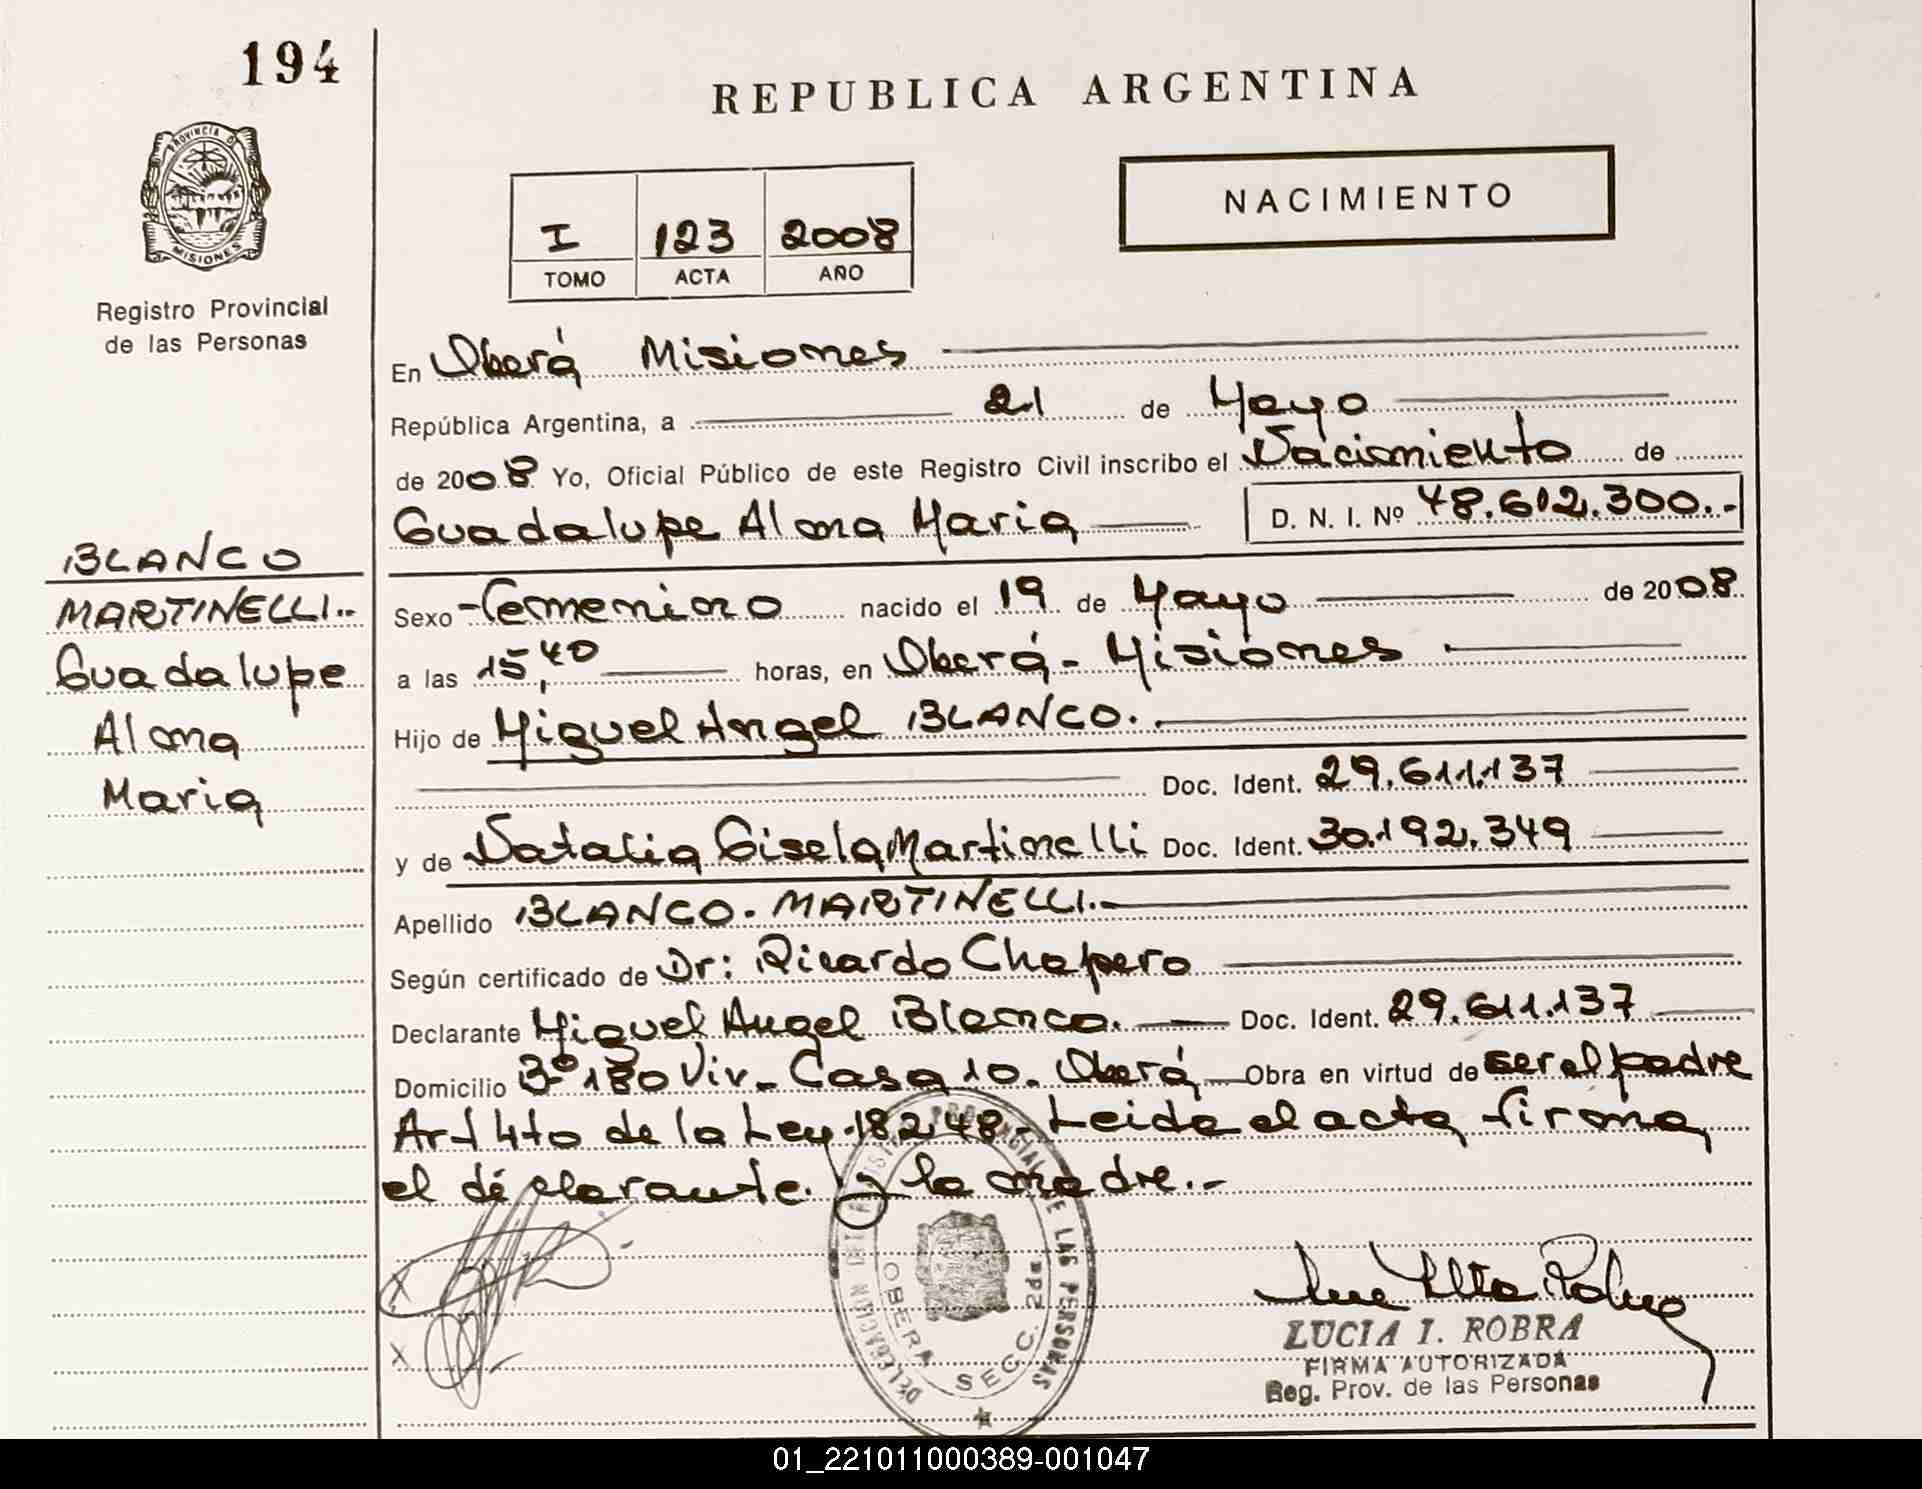 194
REPUBLICA ARGENTINA
PROVINCIA D
MISIONES
Registro Provincial
de las Personas
I 123 2008
TOMO ACTA AÑO
NACIMIENTO
En Oberá Misiones
República Argentina, a 21 de Mayo
de 2008 Yo, Oficial Público de este Registro Civil inscribo el Nacimiento de
Guadalupe Alma Maria D. N. I. Nº 48.612.300.-
BLANCO
MARTINELLI..
Guadalupe
Alma
Maria
Sexo -Femenino nacido el 19 de Mayo de 2008
a las 15,40 horas, en Oberá - Misiones
Hijo de Miguel Angel BLANCO.
Doc. Ident. 29.611.137
y de Natalia Gisela Martinelli Doc. Ident. 30.192.349
Apellido BLANCO. MARTINELLI.-
Según certificado de Dr: Ricardo Chapero
Declarante Miguel Angel Blanco. Doc. Ident. 29.611.137
Domicilio 3º 180 Viv. Casa 10. Oberá Obra en virtud de ser el padre
Art 4to de la Ley 18248. Leida el acta firma
el declarante y la madre.-
DELEGACION DE LAS PERSONAS
OBERA SECC. 2da
LUCIA I. ROBRA
FIRMA AUTORIZADA
Reg. Prov. de las Personas
01_221011000389-001047